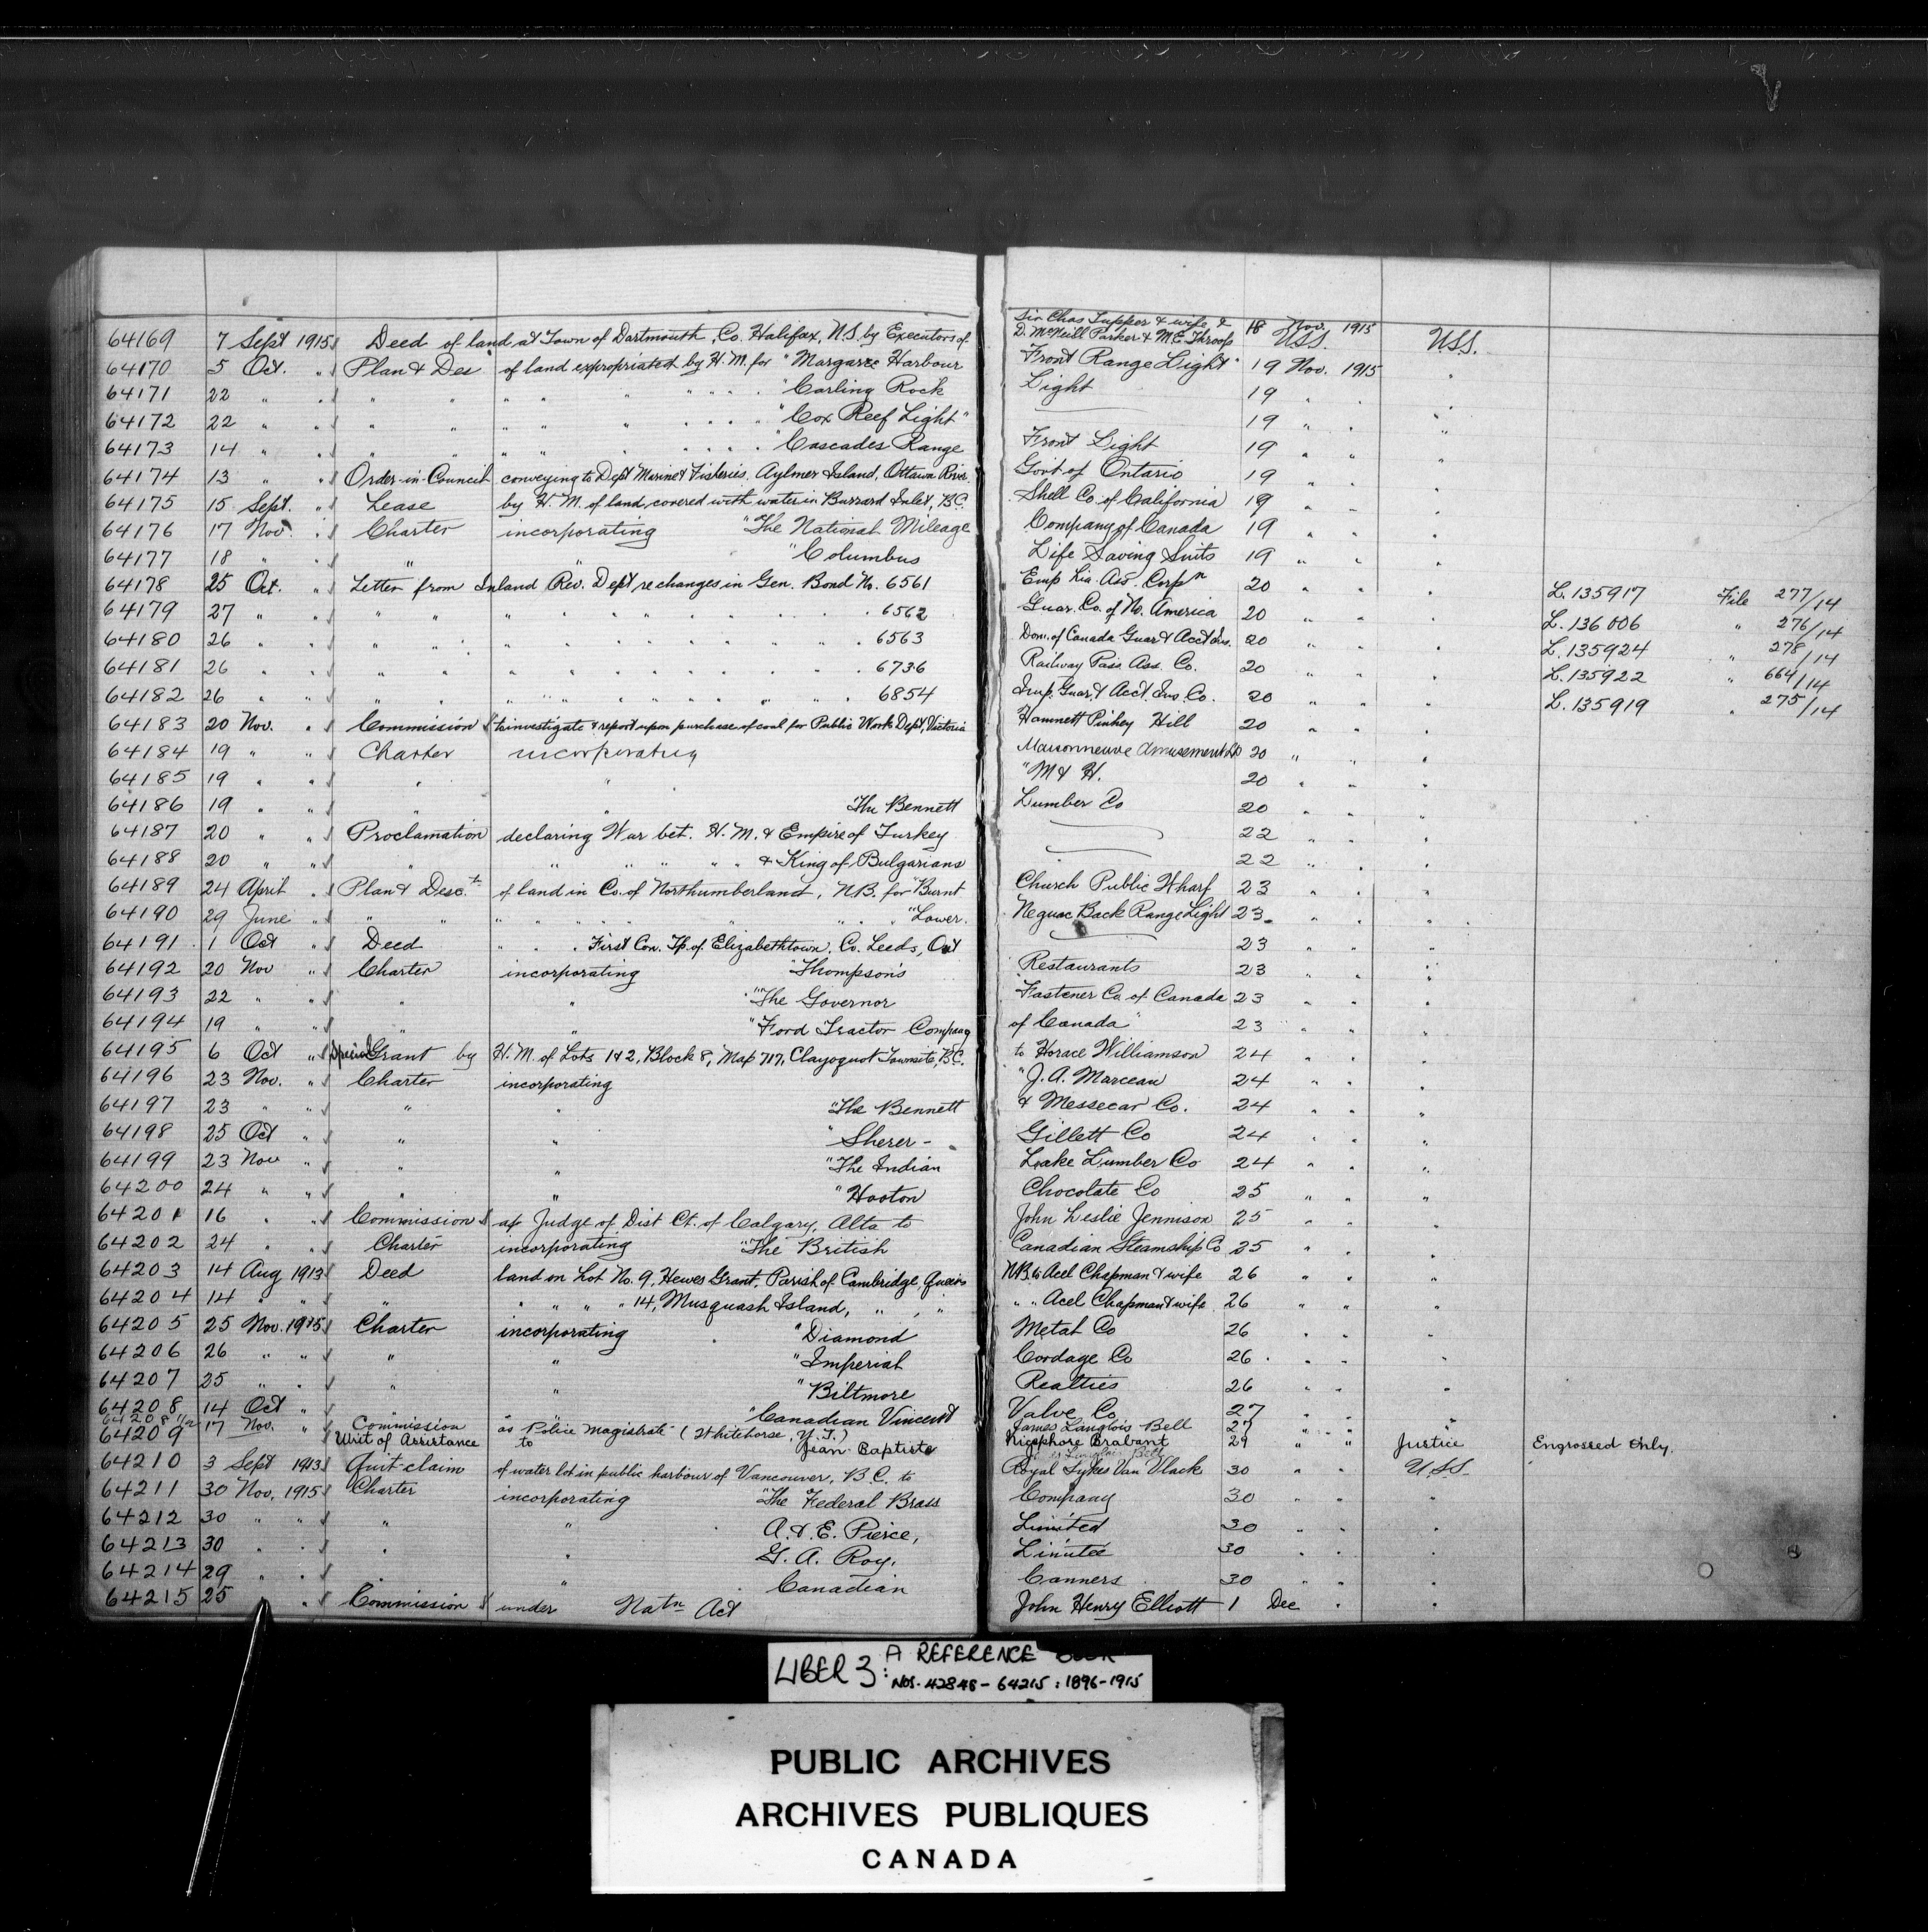 64169 7 Sept 1915 Deed of land at Town of Dartmouth, Co. Halifax, N.S. by Executors of Sir Chas Tupper & wife, & D. McNeill Parker & M.E. Throop 18 Nov. 1915 USS. USS.
64170 5 Oct. " Plan & Des of land expropriated by H.M. for "Margaree Harbour Front Range Light" 19 Nov. 1915 "
64171 22 " " " " " " " " " " " "Carling Rock Light 19 " " "
64172 22 " " " " " " " " " " " "Cox Reef Light" 19 " " "
64173 14 " " " " " " " " " " " "Cascades Range Front Light 19 " " "
64174 13 " " Order-in-Council conveying to Dept Marine & Fisheries, Aylmer Island, Ottawa River Govt of Ontario 19 " " "
64175 15 Sept. " Lease by H.M. of land covered with water in Burrard Inlet, B.C. Shell Co. of California 19 " " "
64176 17 Nov. " Charter incorporating "The National Mileage Company of Canada 19 " " "
64177 18 " " " "Columbus Life Saving Suits 19 " " "
64178 25 Oct. " Letter from Inland Rev. Dept re changes in Gen. Bond No. 6561 Emp Lia. Ass. Corpn 20 " " " L. 135917 File 277/14
64179 27 " " " " " " " " " " " 6562 Guar. Co. of No. America 20 " " " L. 136006 " 276/14
64180 26 " " " " " " " " " " " 6563 Dom. of Canada Guar & Acct Ins. 20 " " " L. 135924 " 278/14
64181 26 " " " " " " " " " " " 6736 Railway Pass. Ass. Co. 20 " " " L. 135922 " 664/14
64182 26 " " " " " " " " " " " 6854 Imp. Guar. & Acct Ins. Co. 20 " " " L. 135919 " 275/14
64183 20 Nov. " Commission to investigate & report upon purchase of coal for Public Work Dept, Victoria Hamnett Pinhey Hill 20 " " "
64184 19 " " Charter incorporating Maisonneuve Amusement Ld 20 " " "
64185 19 " " " " "M & H. 20 " " "
64186 19 " " " " "The Bennett Lumber Co 20 " " "
64187 20 " " Proclamation declaring War bet. H.M. & Empire of Turkey 22 " " "
64188 20 " " " " " " " " & King of Bulgarians 22 " " "
64189 24 April " Plan & Desct of land in Co. of Northumberland, N.B. for "Burnt Church Public Wharf 23 " " "
64190 29 June " " " " " " " " " " "Lower Neguac Back Range Light 23 " " "
64191 1 Oct " Deed " " " First Con. Tp. of Elizabethtown, Co. Leeds, Ont 23 " " "
64192 20 Nov " Charter incorporating "Thompson's Restaurants 23 " " "
64193 22 " " " " "The Governor Fastener Co. of Canada 23 " " "
64194 19 " " " " "Ford Tractor Company of Canada" 23 " " "
64195 6 Oct " Special Grant by H.M. of Lots 1 & 2, Block 8, Map 717, Clayoquot Townsite, B.C. to Horace Williamson 24 " " "
64196 23 Nov. " Charter incorporating "J.A. Marceau 24 " " "
64197 23 " " " " "The Bennett & Messecar Co. 24 " " "
64198 25 Oct " " " "Sherer - Gillett Co 24 " " "
64199 23 Nov " " " "The Indian Lake Lumber Co 24 " " "
64200 24 " " " " "Hooton Chocolate Co 25 " " "
64201 16 " " Commission ap Judge of Dist Ct. of Calgary, Alta to John Leslie Jennison 25 " " "
64202 24 " " Charter incorporating "The British Canadian Steamship Co 25 " " "
64203 14 Aug 1913 Deed land on Lot No. 9, Hewes Grant, Parish of Cambridge, Queens N.B. to Acel Chapman & wife 26 " " "
64204 14 " " " " " " " 14, Musquash Island, " " " " Acel Chapman & wife 26 " " "
64205 25 Nov. 1915 Charter incorporating "Diamond Metal Co 26 " " "
64206 26 " " " " "Imperial Cordage Co 26 " " "
64207 25 " " " " "Biltmore Realties 26 " " "
64208 14 Oct " " " "Canadian Vincent Valve Co 27 " " "
64208 1/2 17 Nov. " Commission as Police Magistrate (Whitehorse, Y.T.) James Langlois Bell 27 " " "
64209 Writ of Assistance to Jean-Baptiste Nicephore Brabant 29 " " Justice Engrossed Only.
64210 3 Sept 1913 Quit-claim of water lot in public harbour of Vancouver, B.C. to Royal Sykes Van Vlack 30 " " USS.
64211 30 Nov. 1915 Charter incorporating "The Federal Brass Company 30 " " "
64212 30 " " " " A. & E. Pierce, Limited 30 " " "
64213 30 " " " " G. A. Roy, Limitee 30 " " "
64214 29 " " " " Canadian Canners 30 " " "
64215 25 " " Commission under Natn Act John Henry Elliott 1 Dec " "
LIBER 3: A REFERENCE
NOS. 42848 - 64215 : 1896-1915
PUBLIC ARCHIVES
ARCHIVES PUBLIQUES
CANADA